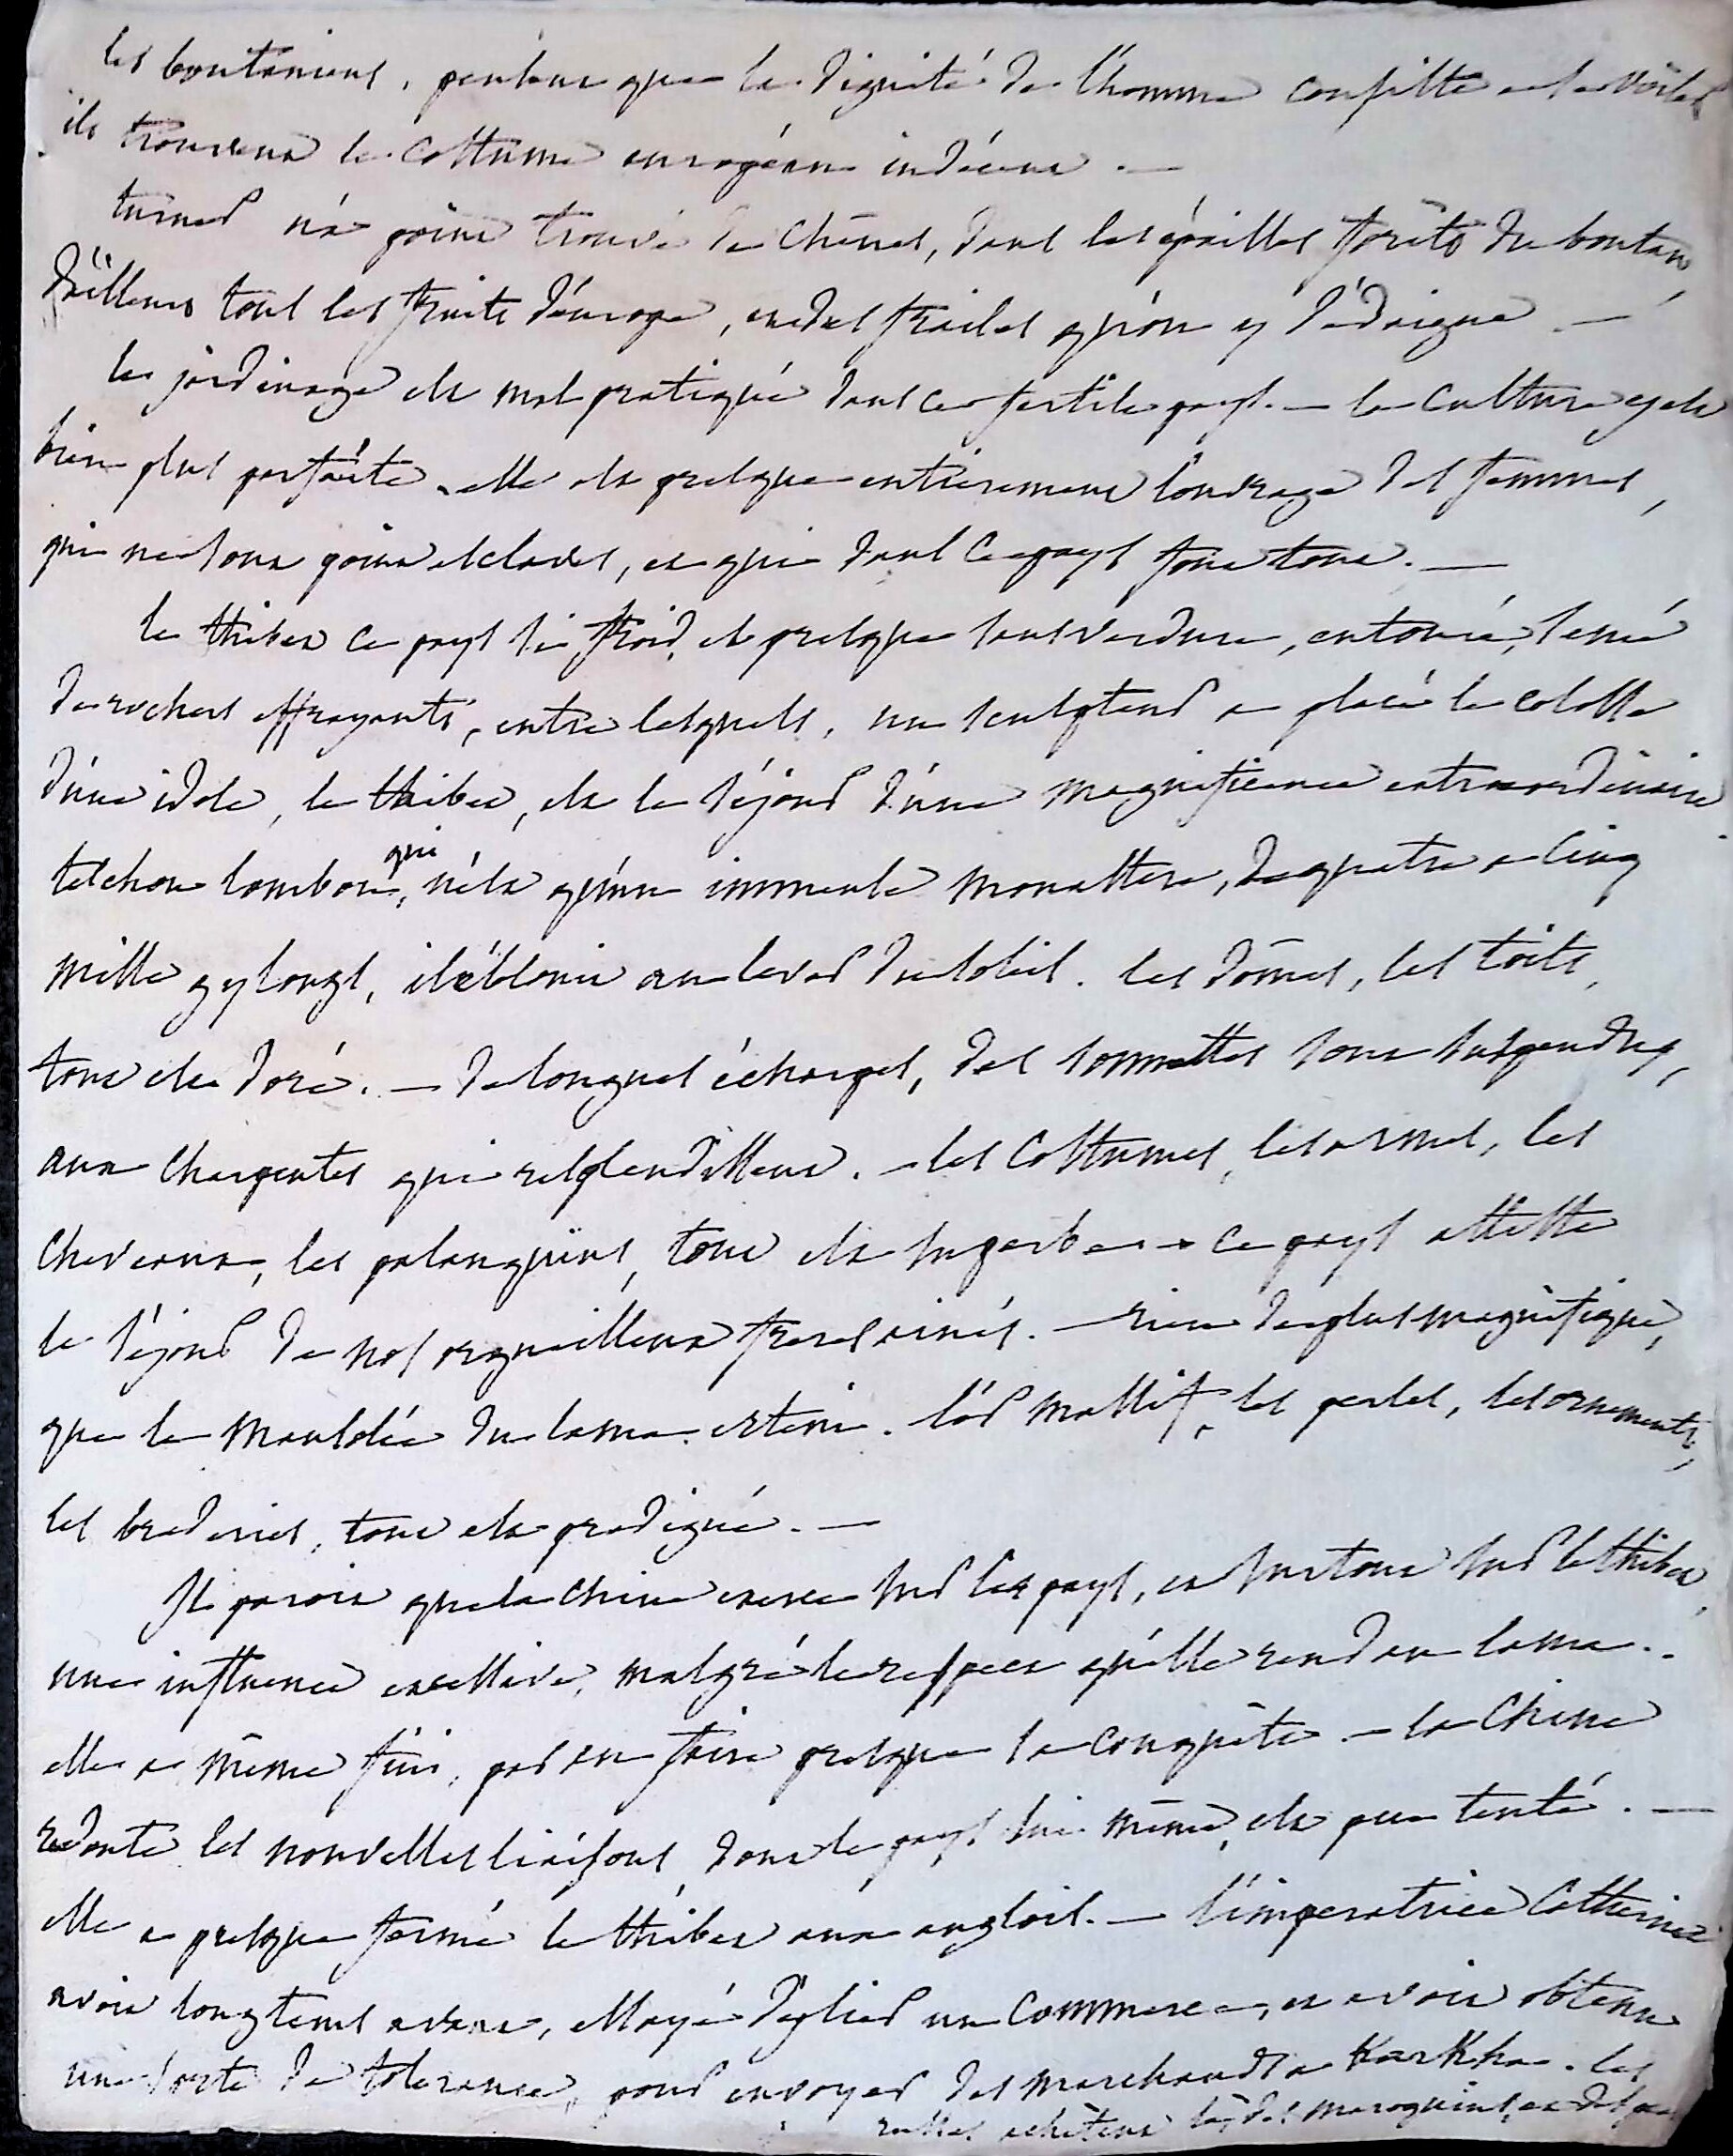 les boutaniens, pensent que la dignité de l'homme consiste a se voiler
ils trouvent le costume européen indécent. —
turner n'a point trouvé de chênes, dans les épaisses forêts du boutan,
d'ailleurs tous les fruits d'europe, et des fraises qu'on y dédaigne. —
le jardinage est mal pratiqué dans ce fertile pays. — la culture y est
bien plus parfaite. elle est presque entierement l'ouvrage des femmes,
qui ne sont point esclaves, et qui dans ce pays font tout. —
le thibet ce pays si froid, et presque sans verdure, entouré, semé
de rochers effrayants, entre lesquels, un sculpteur a placé le colosse
d'une idole, le thibet, est le séjour d'une magnificence extraordinaire
teschou loumbou, qui n'est qu'un immense monastere, de quatre a cinq
mille gylongs, il éblouit au lever du soleil. les dômes, les toits,
tout est doré. — de longues écharpes, des sonnettes sont suspendues,
aux charpentes qui resplendissent. — les costumes, les armes, les
chevaux, les palanquins, tout est superbe — ce pays atteste
le séjour de nos orgueilleux freres ainés. — rien de plus magnifique,
que le mausolée du lama erteni. l'or massif, les perles, les ornements,
les broderies, tout est prodigué. —
Il paroit que la chine exerce sur les pays, et surtout sur le thibet,
une influence excessive, malgré le respect qu'elle rend au lama. .
elle a même fini, par en faire presque la conquête. — la Chine
redoute les nouvelles liaisons, dont le pays lui même, est peu tenté. —
elle a presque fermé le thibet aux anglois. — l'imperatrice Catherine
avoit longtems avant, essayé d'y lier un commerce, et avoit obtenu
une sorte de tolerance, pour envoyer des marchands a Karkha. les
russes achetent là des maroquins, et des